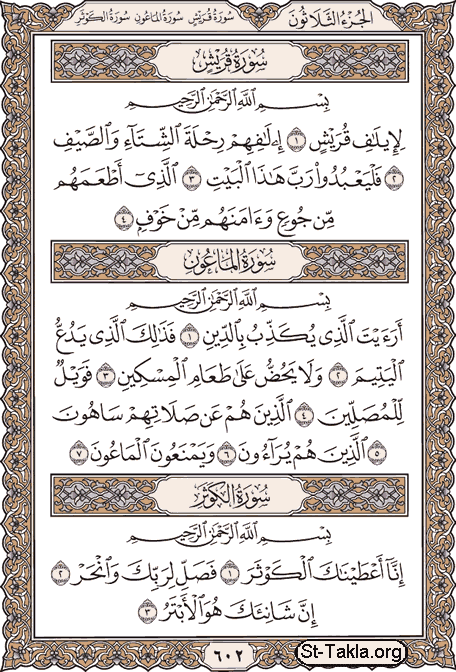 سُورَةُ قُرَيْشٍ سُورَةُ المَاعُونِ سُورَةُ الكَوْثَرِ الجُزْءُ الثَّلَاثُونَ
سُورَةُ قُرَيْشٍ
بِسْمِ ٱللَّهِ ٱلرَّحْمَٰنِ ٱلرَّحِيمِ
لِإِيلَٰفِ قُرَيْشٍ ١ إِۦلَٰفِهِمْ رِحْلَةَ ٱلشِّتَآءِ وَٱلصَّيْفِ
٢ فَلْيَعْبُدُوا۟ رَبَّ هَٰذَا ٱلْبَيْتِ ٣ ٱلَّذِىٓ أَطْعَمَهُم
مِّن جُوعٍ وَءَامَنَهُم مِّنْ خَوْفٍۭ ٤
سُورَةُ المَاعُونِ
بِسْمِ ٱللَّهِ ٱلرَّحْمَٰنِ ٱلرَّحِيمِ
أَرَءَيْتَ ٱلَّذِى يُكَذِّبُ بِٱلدِّينِ ١ فَذَٰلِكَ ٱلَّذِى يَدُعُّ
ٱلْيَتِيمَ ٢ وَلَا يَحُضُّ عَلَىٰ طَعَامِ ٱلْمِسْكِينِ ٣ فَوَيْلٌ
لِّلْمُصَلِّينَ ٤ ٱلَّذِينَ هُمْ عَن صَلَاتِهِمْ سَاهُونَ
٥ ٱلَّذِينَ هُمْ يُرَآءُونَ ٦ وَيَمْنَعُونَ ٱلْمَاعُونَ ٧
سُورَةُ الكَوْثَرِ
بِسْمِ ٱللَّهِ ٱلرَّحْمَٰنِ ٱلرَّحِيمِ
إِنَّآ أَعْطَيْنَٰكَ ٱلْكَوْثَرَ ١ فَصَلِّ لِرَبِّكَ وَٱنْحَرْ ٢
إِنَّ شَانِئَكَ هُوَ ٱلْأَبْتَرُ ٣
٦٠٢
St-Takla.org